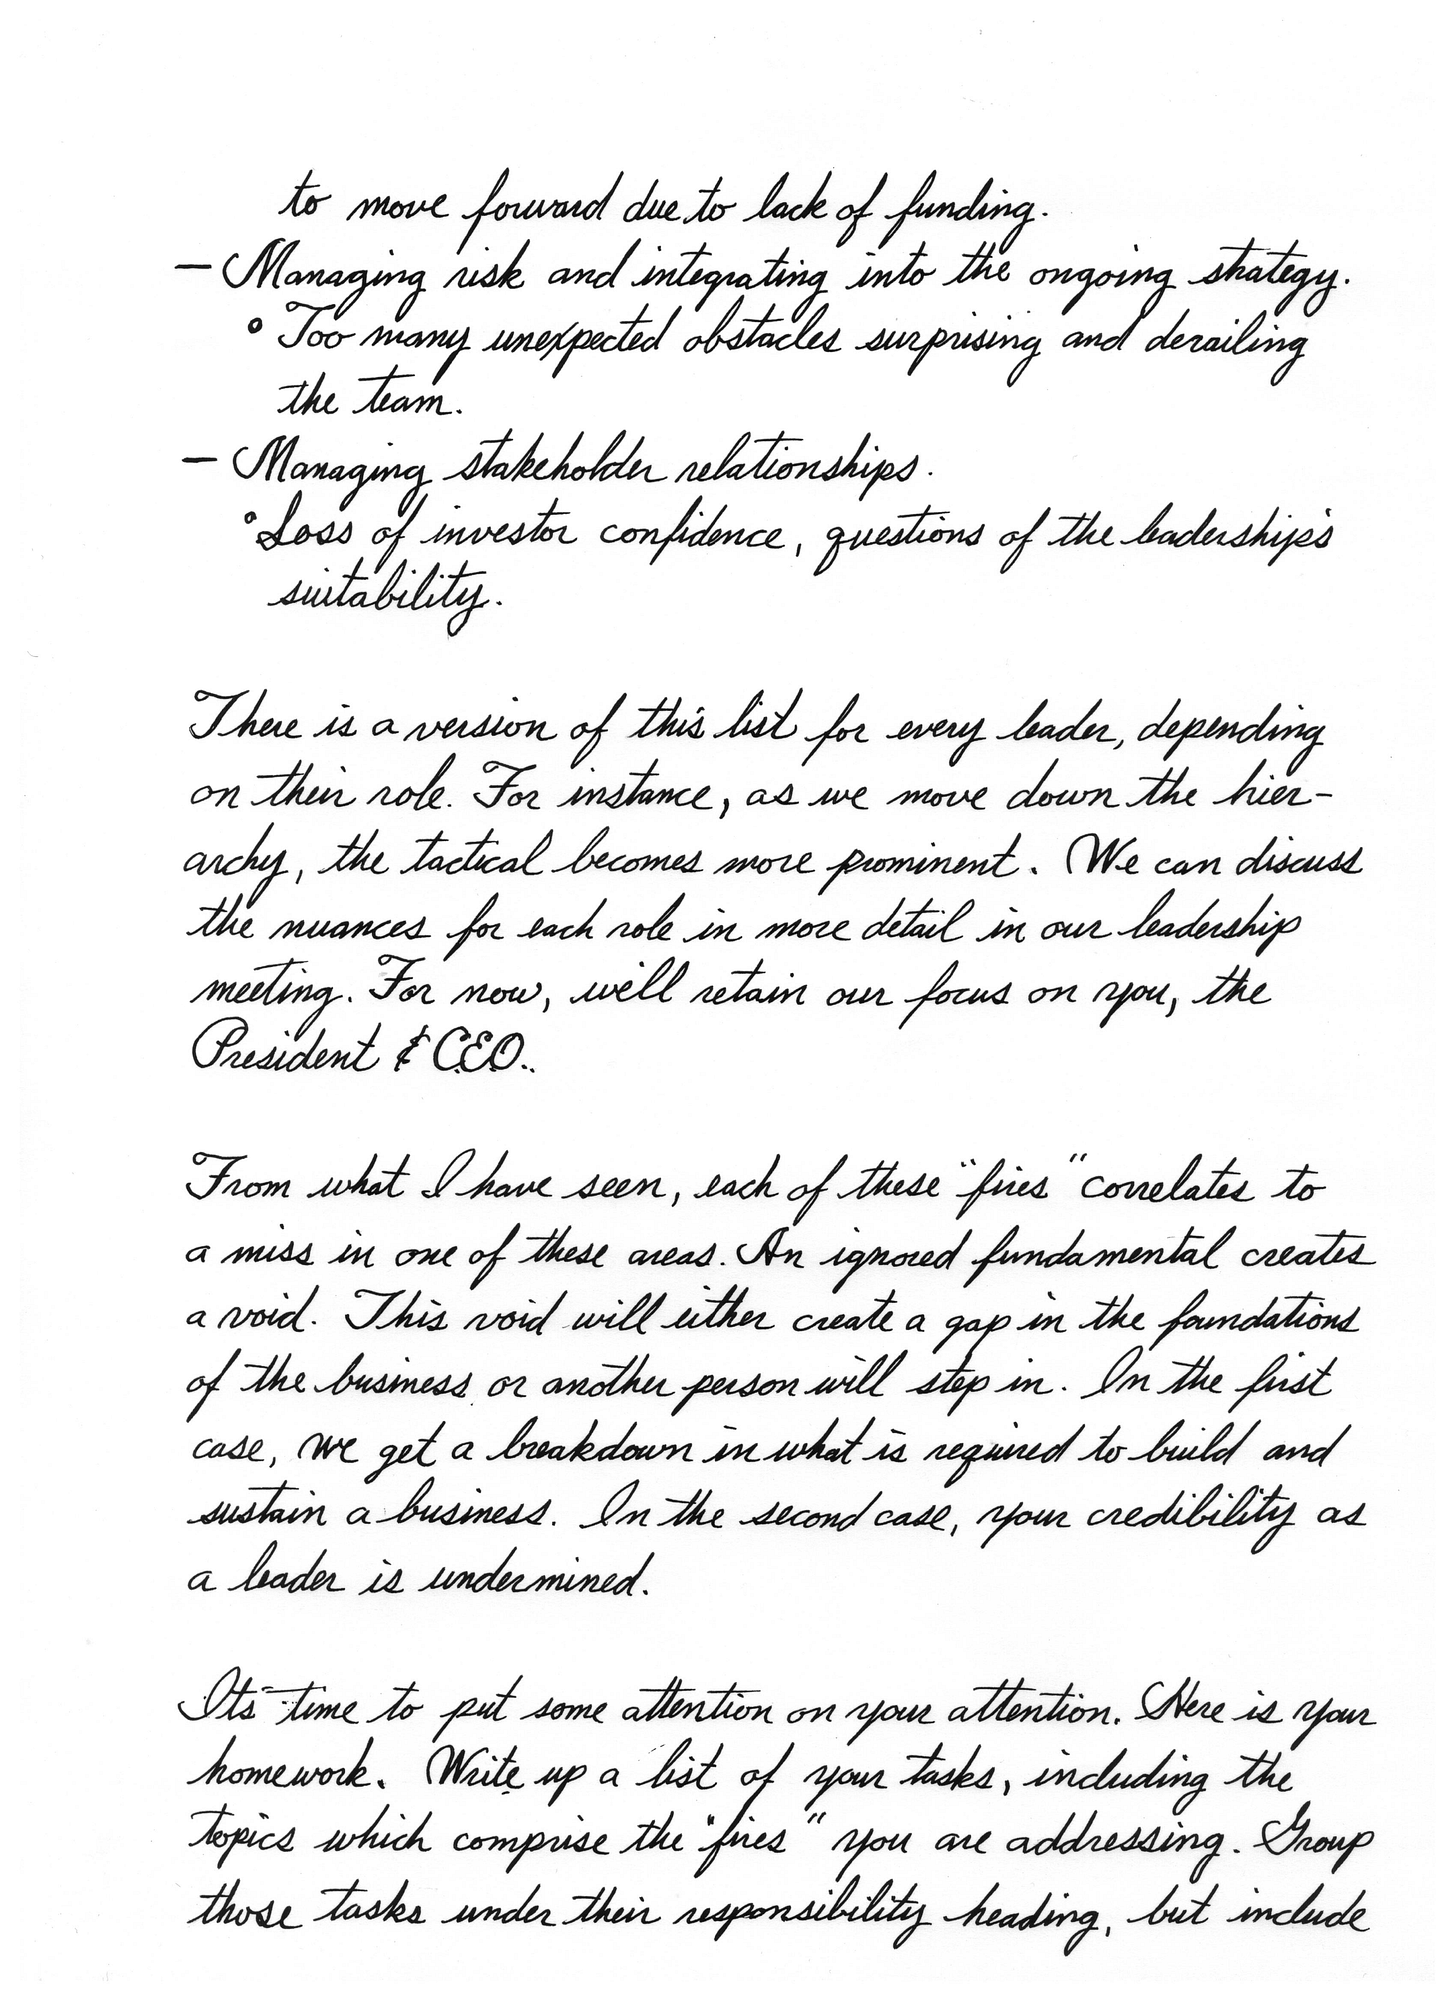 to move forward due to lack of funding.
— Managing risk and integrating into the ongoing strategy.
° Too many unexpected obstacles surprising and derailing
the team.
— Managing stakeholder relationships.
° Loss of investor confidence, questions of the leadership's
suitability.
There is a version of this list for every leader, depending
on their role. For instance, as we move down the hier-
archy, the tactical becomes more prominent. We can discuss
the nuances for each role in more detail in our leadership
meeting. For now, we'll retain our focus on you, the
President & C.E.O..
From what I have seen, each of these "fires" correlates to
a miss in one of these areas. An ignored fundamental creates
a void. This void will either create a gap in the foundations
of the business or another person will step in. In the first
case, we get a breakdown in what is required to build and
sustain a business. In the second case, your credibility as
a leader is undermined.
It's time to put some attention on your attention. Here is your
homework. Write up a list of your tasks, including the
topics which comprise the "fires" you are addressing. Group
those tasks under their responsibility heading, but include